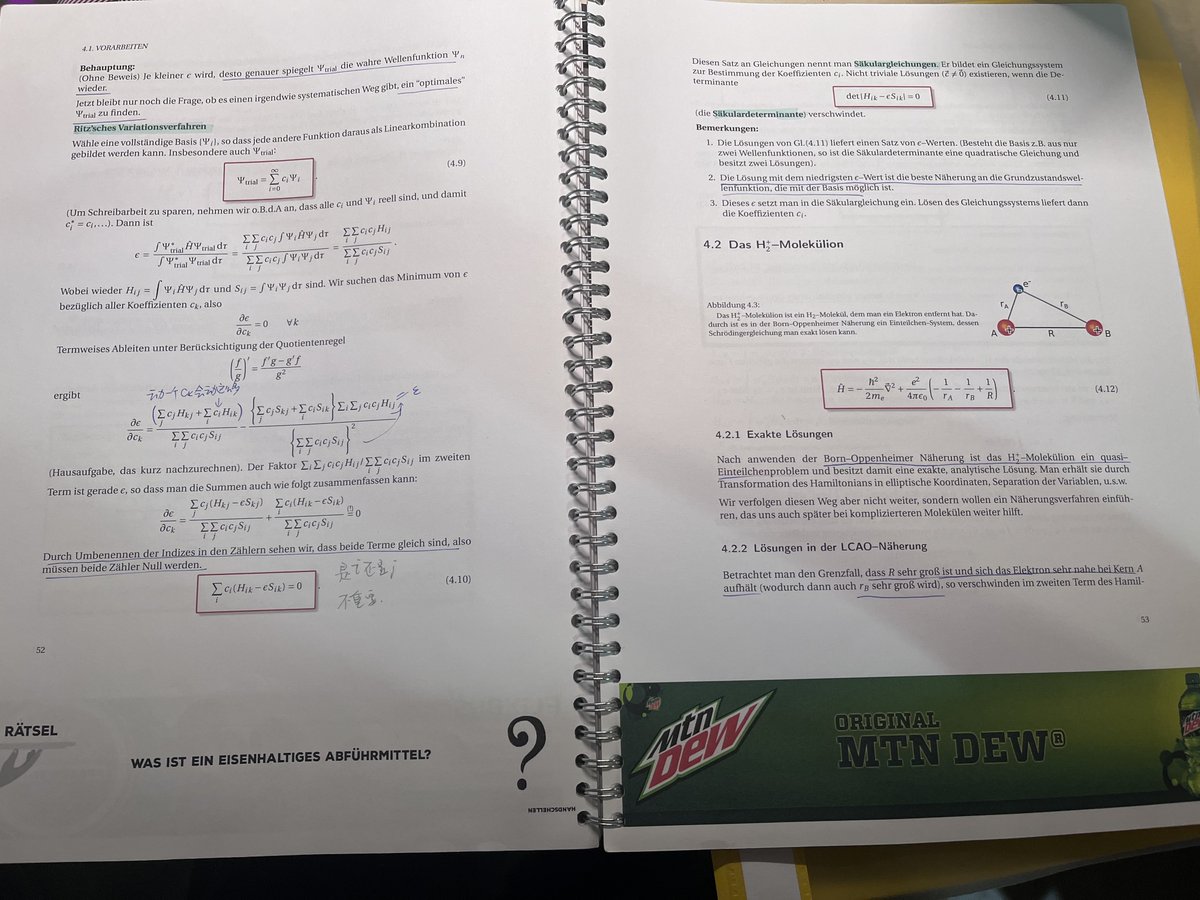 4.1. VORARBEITEN
Behauptung:
(Ohne Beweis) Je kleiner ϵ wird, desto genauer spiegelt Ψ_trial die wahre Wellenfunktion Ψ_n
wieder.
Jetzt bleibt nur noch die Frage, ob es einen irgendwie systematischen Weg gibt, ein "optimales"
Ψ_trial zu finden.
Ritz'sches Variationsverfahren
Wähle eine vollständige Basis {Ψ_i}, so dass jede andere Funktion daraus als Linearkombination
gebildet werden kann. Insbesondere auch Ψ_trial:
Ψ_trial = ∑_{i=0}^{∞} c_i Ψ_i (4.9)
(Um Schreibarbeit zu sparen, nehmen wir o.B.d.A an, dass alle c_i und Ψ_i reell sind, und damit
c_i^* = c_i,...). Dann ist
ϵ = ∫Ψ^*_trial Ĥ Ψ_trial dτ / ∫Ψ^*_trial Ψ_trial dτ = ∑_i ∑_j c_i c_j ∫Ψ_i Ĥ Ψ_j dτ / ∑_i ∑_j c_i c_j ∫Ψ_i Ψ_j dτ = ∑_i ∑_j c_i c_j H_ij / ∑_i ∑_j c_i c_j S_ij .
Wobei wieder H_ij = ∫ Ψ_i Ĥ Ψ_j dτ und S_ij = ∫ Ψ_i Ψ_j dτ sind. Wir suchen das Minimum von ϵ
bezüglich aller Koeffizienten c_k, also
∂ϵ/∂c_k = 0 ∀k
Termweises Ableiten unter Berücksichtigung der Quotientenregel
(f/g)' = (f'g − g'f)/g²
ergibt
∂ϵ/∂c_k = (∑_j c_j H_kj + ∑_i c_i H_ik) / ∑_i ∑_j c_i c_j S_ij − {∑_j c_j S_kj + ∑_i c_i S_ik} ∑_i ∑_j c_i c_j H_ij / {∑_i ∑_j c_i c_j S_ij}² ε
(Hausaufgabe, das kurz nachzurechnen). Der Faktor ∑_i ∑_j c_i c_j H_ij / ∑_i ∑_j c_i c_j S_ij im zweiten
Term ist gerade ϵ, so dass man die Summen auch wie folgt zusammenfassen kann:
∂ϵ/∂c_k = ∑_j c_j (H_kj − ϵS_kj) / ∑_i ∑_j c_i c_j S_ij + ∑_i c_i (H_ik − ϵS_ik) / ∑_i ∑_j c_i c_j S_ij (!)= 0
Durch Umbenennen der Indizes in den Zählern sehen wir, dass beide Terme gleich sind, also
müssen beide Zähler Null werden.
∑_i c_i (H_ik − ϵS_ik) = 0 . (4.10)
是i还是j
不重要.
52
RÄTSEL
WAS IST EIN EISENHALTIGES ABFÜHRMITTEL?
?
HANDSCHELLEN
Diesen Satz an Gleichungen nennt man Säkulargleichungen. Er bildet ein Gleichungssystem
zur Bestimmung der Koeffizienten c_i. Nicht triviale Lösungen (c⃗ ≠ 0⃗) existieren, wenn die De-
terminante
det|H_ik − ϵS_ik| = 0 (4.11)
(die Säkulardeterminante) verschwindet.
Bemerkungen:
1. Die Lösungen von Gl.(4.11) liefert einen Satz von ϵ−Werten. (Besteht die Basis z.B. aus nur
zwei Wellenfunktionen, so ist die Säkulardeterminante eine quadratische Gleichung und
besitzt zwei Lösungen).
2. Die Lösung mit dem niedrigsten ϵ−Wert ist die beste Näherung an die Grundzustandswel-
lenfunktion, die mit der Basis möglich ist.
3. Dieses ϵ setzt man in die Säkulargleichung ein. Lösen des Gleichungssystems liefert dann
die Koeffizienten c_i.
4.2 Das H₂⁺−Molekülion
Abbildung 4.3:
Das H₂⁺−Molekülion ist ein H₂−Molekül, dem man ein Elektron entfernt hat. Da-
durch ist es in der Born–Oppenheimer Näherung ein Einteilchen-System, dessen
Schrödingergleichung man exakt lösen kann.
e⁻
r_A
r_B
A
R
B
Ĥ = −ħ²/2m_e ∇⃗² + e²/4πϵ₀ (−1/r_A − 1/r_B + 1/R) . (4.12)
4.2.1 Exakte Lösungen
Nach anwenden der Born–Oppenheimer Näherung ist das H₂⁺−Molekülion ein quasi–
Einteilchenproblem und besitzt damit eine exakte, analytische Lösung. Man erhält sie durch
Transformation des Hamiltonians in elliptische Koordinaten, Separation der Variablen, u.s.w.
Wir verfolgen diesen Weg aber nicht weiter, sondern wollen ein Näherungsverfahren einfüh-
ren, das uns auch später bei komplizierteren Molekülen weiter hilft.
4.2.2 Lösungen in der LCAO–Näherung
Betrachtet man den Grenzfall, dass R sehr groß ist und sich das Elektron sehr nahe bei Kern A
aufhält (wodurch dann auch r_B sehr groß wird), so verschwinden im zweiten Term des Hamil-
53
Mtn
DEW
ORIGINAL
MTN DEW®